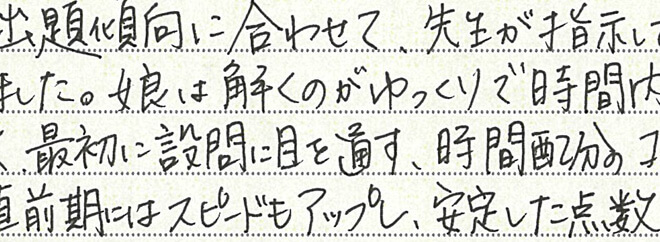 出題傾向に合わせて、先生が指示して
した。娘は解くのがゆっくりで時間内
、最初に設問に目を通す、時間配分のコ
直前期にはスピードもアップし、安定した点数